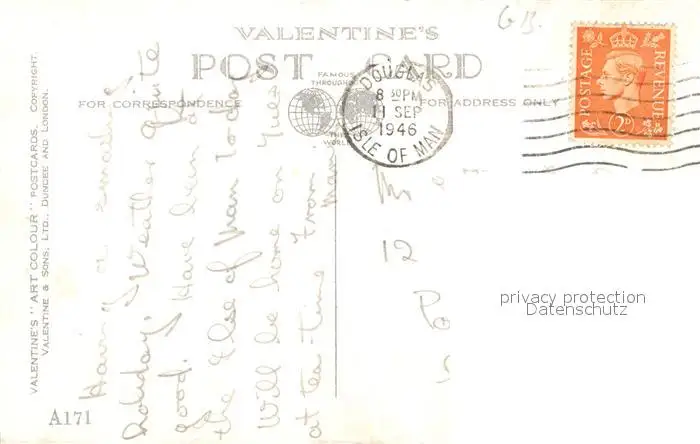 G B.
VALENTINE'S
POST CARD
FAMOUS
THROUGHOUT
THE
WORLD
FOR CORRESPONDENCE
FOR ADDRESS ONLY
DOUGLAS
8 30 PM
11 SEP
1946
ISLE OF MAN
POSTAGE
REVENUE
2D
VALENTINE'S "ART COLOUR" POSTCARDS. COPYRIGHT.
VALENTINE & SONS, LTD., DUNDEE AND LONDON.
Having a smashing
holiday, weather quite
good. Have been at
the Isle of Man to-day
Will be home on Tues
at tea-time from
12
privacy protection
Datenschutz
A171